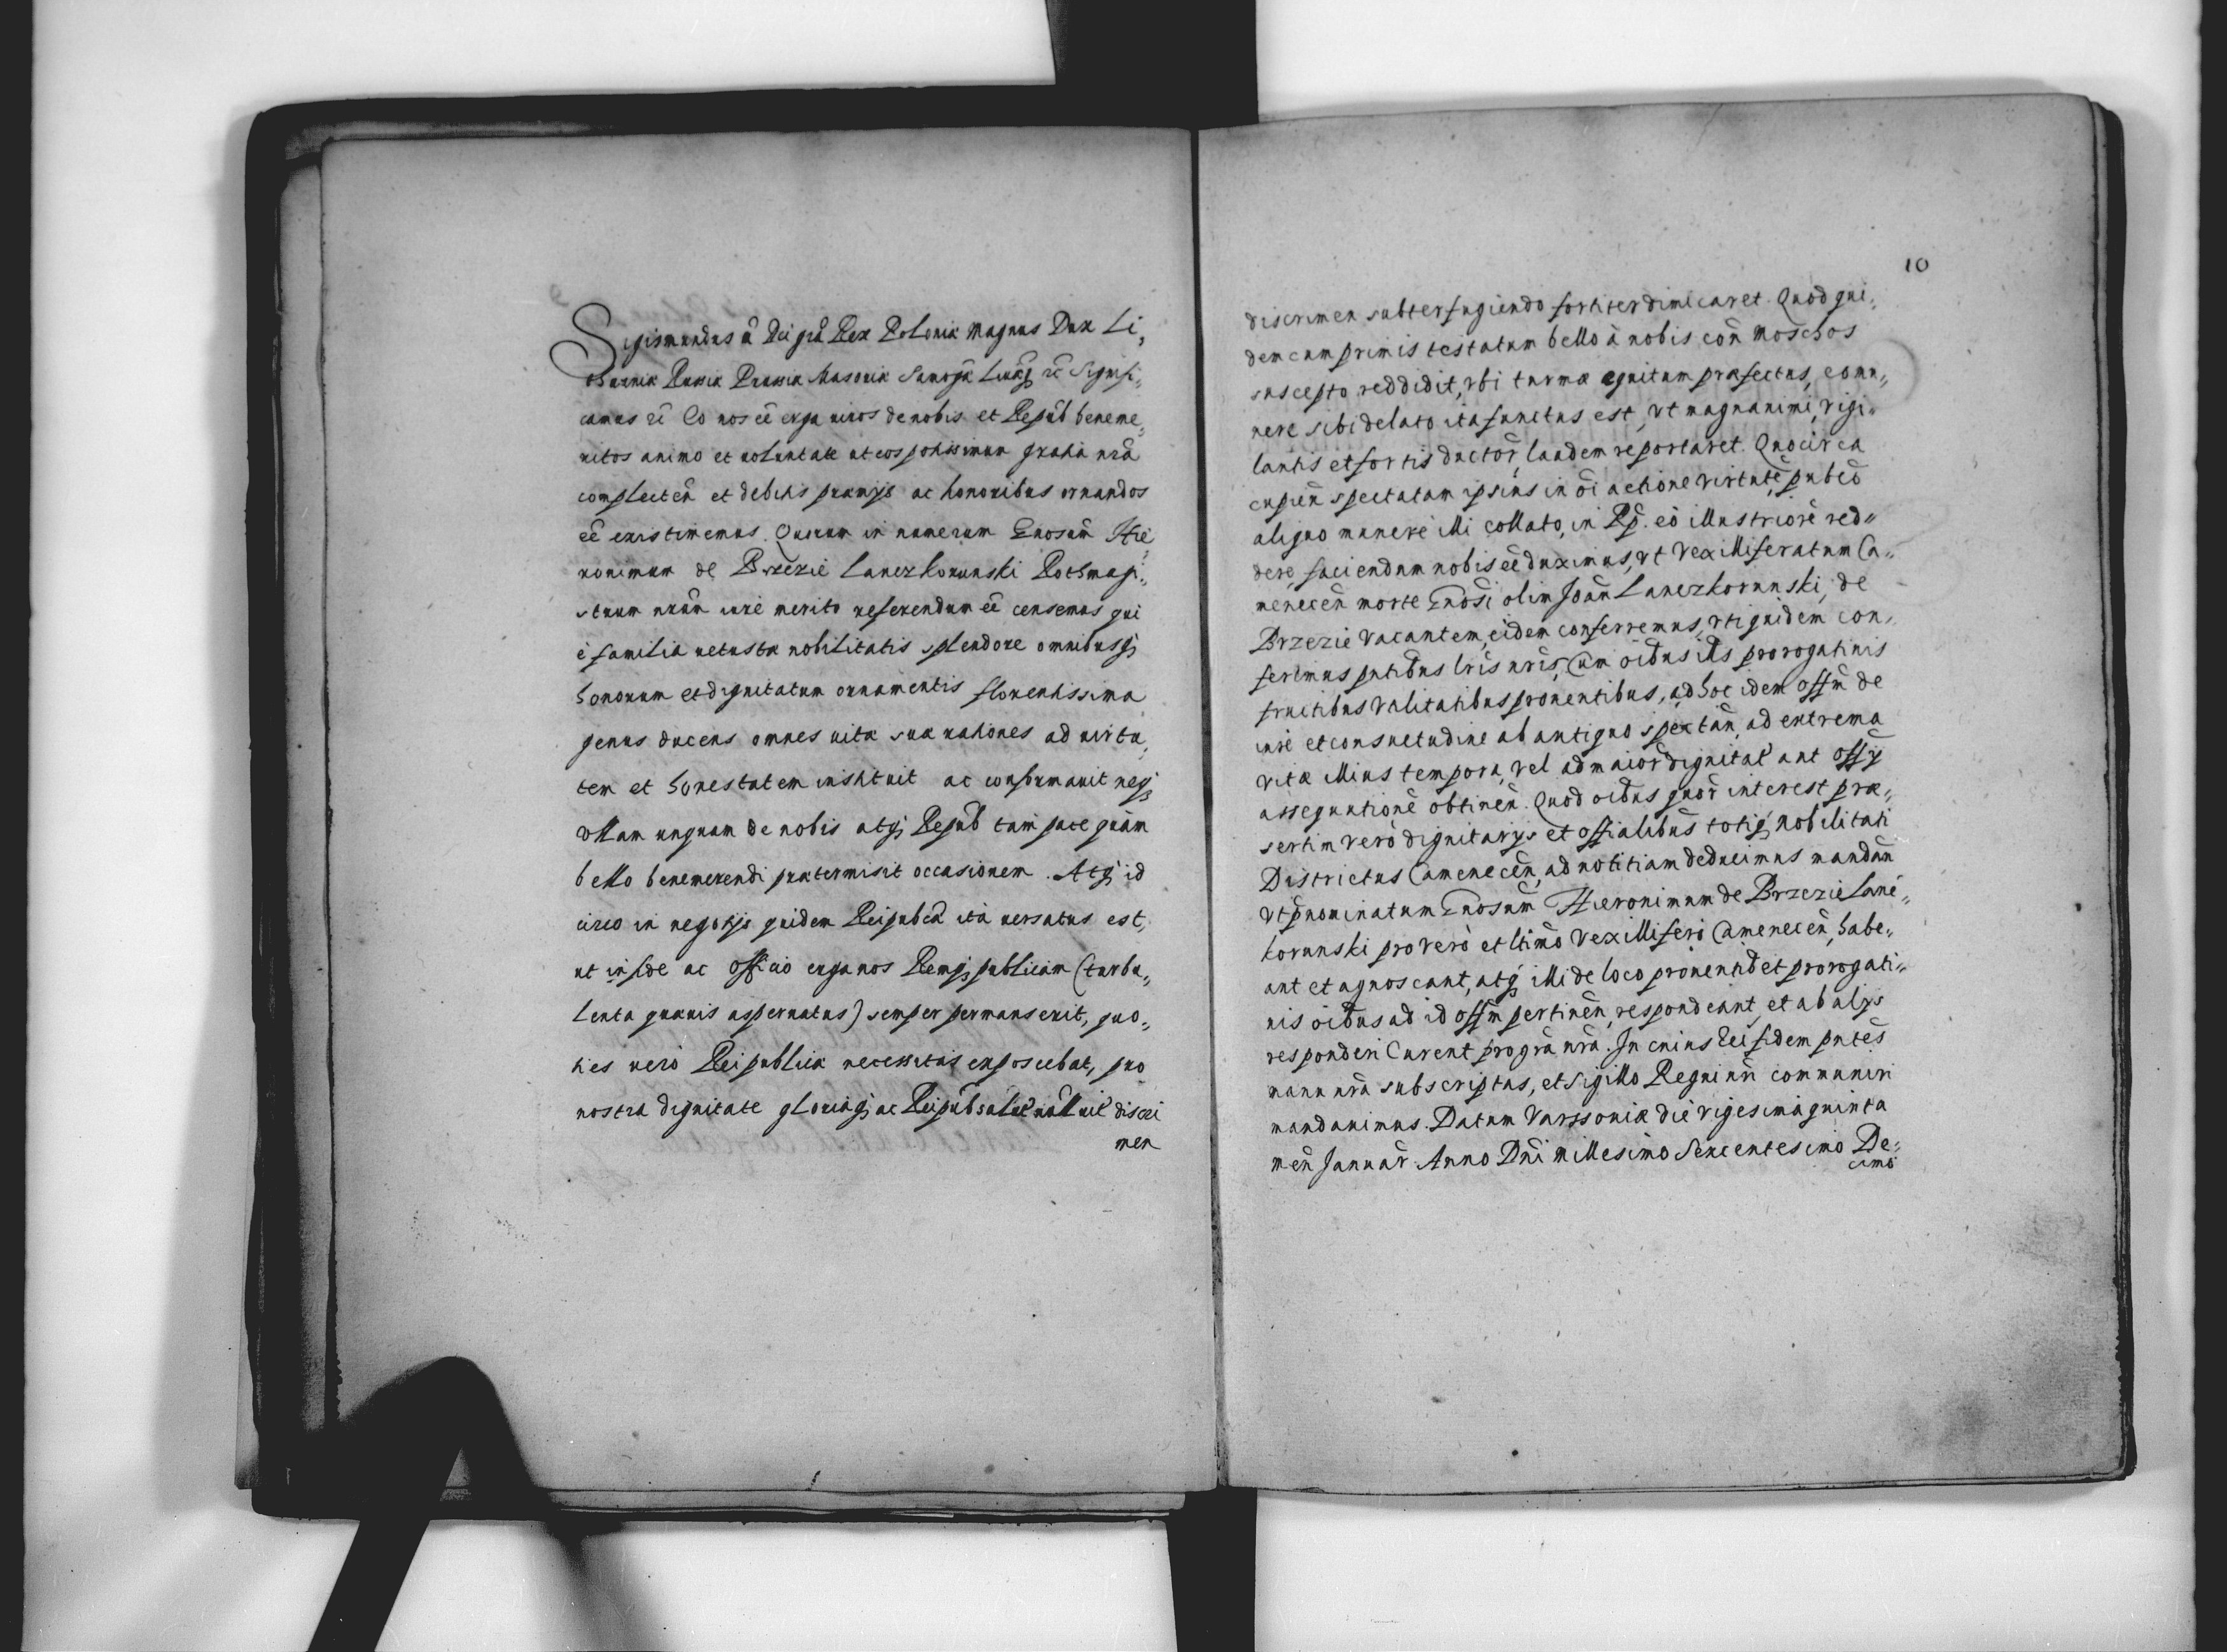 Sigismundus 3 Dei grã Rex Poloniæ Magnus Dux Li„
thuaniæ Russiæ Prussiæ Masoviæ Samogæ Livãq rc̃ Signifi„
camus rc̃ Eo nos eẽ erga uiros de nobis et Repúb beneme„
ritos animo et uoluntate ut eos potissimum gratia nrã
complectẽn et debitis præmijs ac honoribus ornandos
eẽ existimemus. Quorum in numerum Gnosum Hie„
ronimum de Brzezie Lanczkorunski Rothmagi„
strum nrũm iure merito referendum eẽ censemus qui
è familia uetustæ nobilitatis splendore omnibusq
honorum et dignitatum ornamentis florentissima
genus ducens omnes uitæ suæ rationes ad uirtu„
tem et honestatem instituit ac confirmauit neq
vllam unquam de nobis atq Repúb tam pace quàm
bello benemerendi prætermisit occasionem. Atq id
circo in negotijs quidem Reipubcæ ita uersatus est,
ut in fide ac officio erga nos Remq publicam (turbu„
lenta quæuis aspernatus) semper permanserit, quo„
ties uerò Reipublicæ necessitas exposcebat, pro
nostra dignitate gloriaq ac Reipúb salute nullum discri
men
10
discrimen subterfugiendo fortiter dimicaret. Quod qui„
dem cum primis testatum bello à nobis cõn Moschos
suscepto reddidit, vbi turmæ equitum præfectus, eo mu„
nere sibi delato ita functus est, vt magnanimi, vigi„
lantis et fortis ductõr, laudem reportaret. Quocirca
cupiẽn spectatam ipsius in oĩ actione virtutẽ, pubcõ
aliquo munere illi collato, in Rp. eò illustriorẽ red„
dere, faciendum nobis eẽ duximus, vt Vexilliferatum Ca„
menecẽn morte Gnosi olim Joãn Lanczkorunski, de
Brzezie vacantem, eidem conferremus, vti quidem con„
ferimus pntibus lrĩs nrĩs, Cum oĩbus illis prorogatinis
fructibus vtilitatibus prouentibus, ad hoc idem offm de
iure et consuetudine ab antiquo spectãn, ad extrema
vitæ illius tempora, vel ad maiõr dignitat aut offij
assequutionẽ obtinẽn. Quod oĩbus quõr interest præ„
sertim verò dignitarijs et offialibũs totiq nobilitati
Districtus Camenecẽn, ad notitiam deducimus mandãn
vt pnominatum Gnosum Hieronimum de Brzezie Lanc„
korunski pro vero et ltimo Vexillifero Camenecẽn, habe„
ant et agnoscant, atq illi de loco prouentib et prorogati„
nis oĩbus ad id offm pertinẽn, respondeant, et ab alijs
responderi Curent pro grã nrã. In cuius rei fidem pntes
manu nrã subscriptas, et sigillo Regni nri communiri
mandauimus. Datum Varssouiæ die vigesima quinta
mẽn Januãr. Anno Dni Millesimo Sexcentesimo De„
cimo